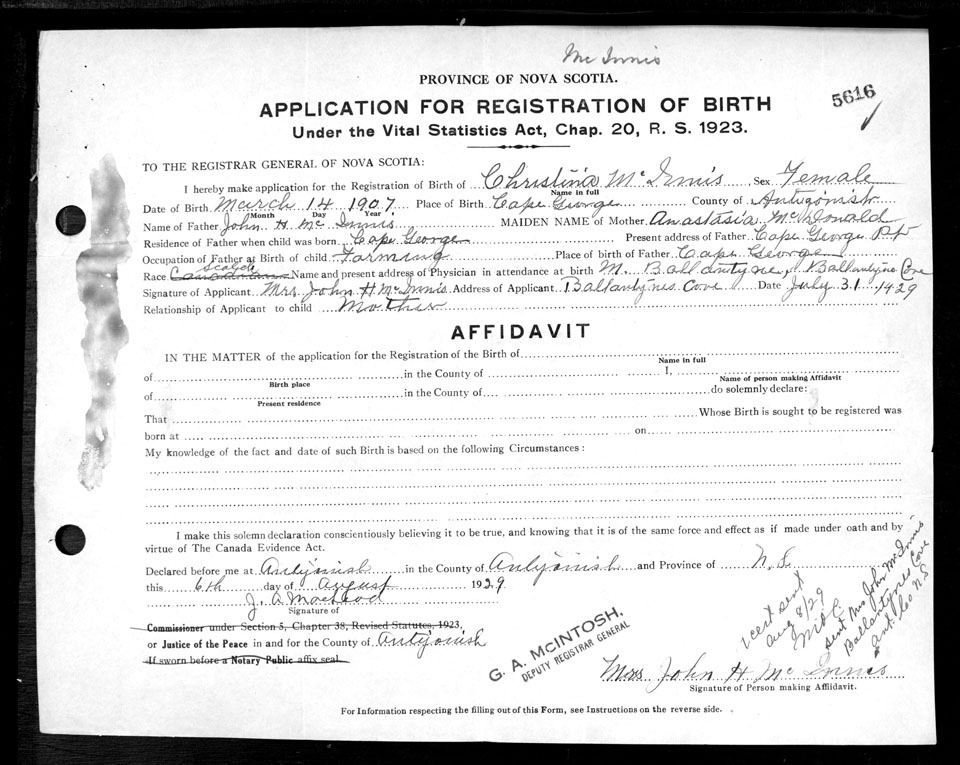 Mc Innis
PROVINCE OF NOVA SCOTIA.
5616
APPLICATION FOR REGISTRATION OF BIRTH
Under the Vital Statistics Act, Chap. 20, R. S. 1923.
TO THE REGISTRAR GENERAL OF NOVA SCOTIA:
I hereby make application for the Registration of Birth of Christina McInnis Sex Female
Name in full
Date of Birth March 14 1907 Place of Birth Cape George County of Antigonish
Month Day Year
Name of Father John H Mc Innis MAIDEN NAME of Mother Anastasia McDonald
Residence of Father when child was born Cape George Present address of Father Cape George Pt
Occupation of Father at Birth of child Farming Place of birth of Father Cape George
Race Canadian Scotch Name and present address of Physician in attendance at birth M. Ballantyne, Ballantynes Cove
Signature of Applicant Mrs John H McInnis Address of Applicant Ballantynes Cove Date July 31 1929
Relationship of Applicant to child Mother
AFFIDAVIT
IN THE MATTER of the application for the Registration of the Birth of
Name in full
of in the County of I,
Birth place Name of person making Affidavit
of in the County of do solemnly declare:
Present residence
That Whose Birth is sought to be registered was
born at on
My knowledge of the fact and date of such Birth is based on the following Circumstances:
I make this solemn declaration conscientiously believing it to be true, and knowing that it is of the same force and effect as if made under oath and by
virtue of The Canada Evidence Act.
Declared before me at Antigonish in the County of Antigonish and Province of N.S.
this 6th day of August 1929
J. A Macleod
Signature of
Commissioner under Section 5, Chapter 38, Revised Statutes, 1923,
or Justice of the Peace in and for the County of Antigonish
If sworn before a Notary Public affix seal.
G. A. McINTOSH,
DEPUTY REGISTRAR GENERAL
1 cert sent
Aug 8/29
sent Mrs John McInnis
Ballantynes Cove
Ant. Co N.S
Mrs John H Mc Innis
Signature of Person making Affidavit.
For Information respecting the filling out of this Form, see Instructions on the reverse side.